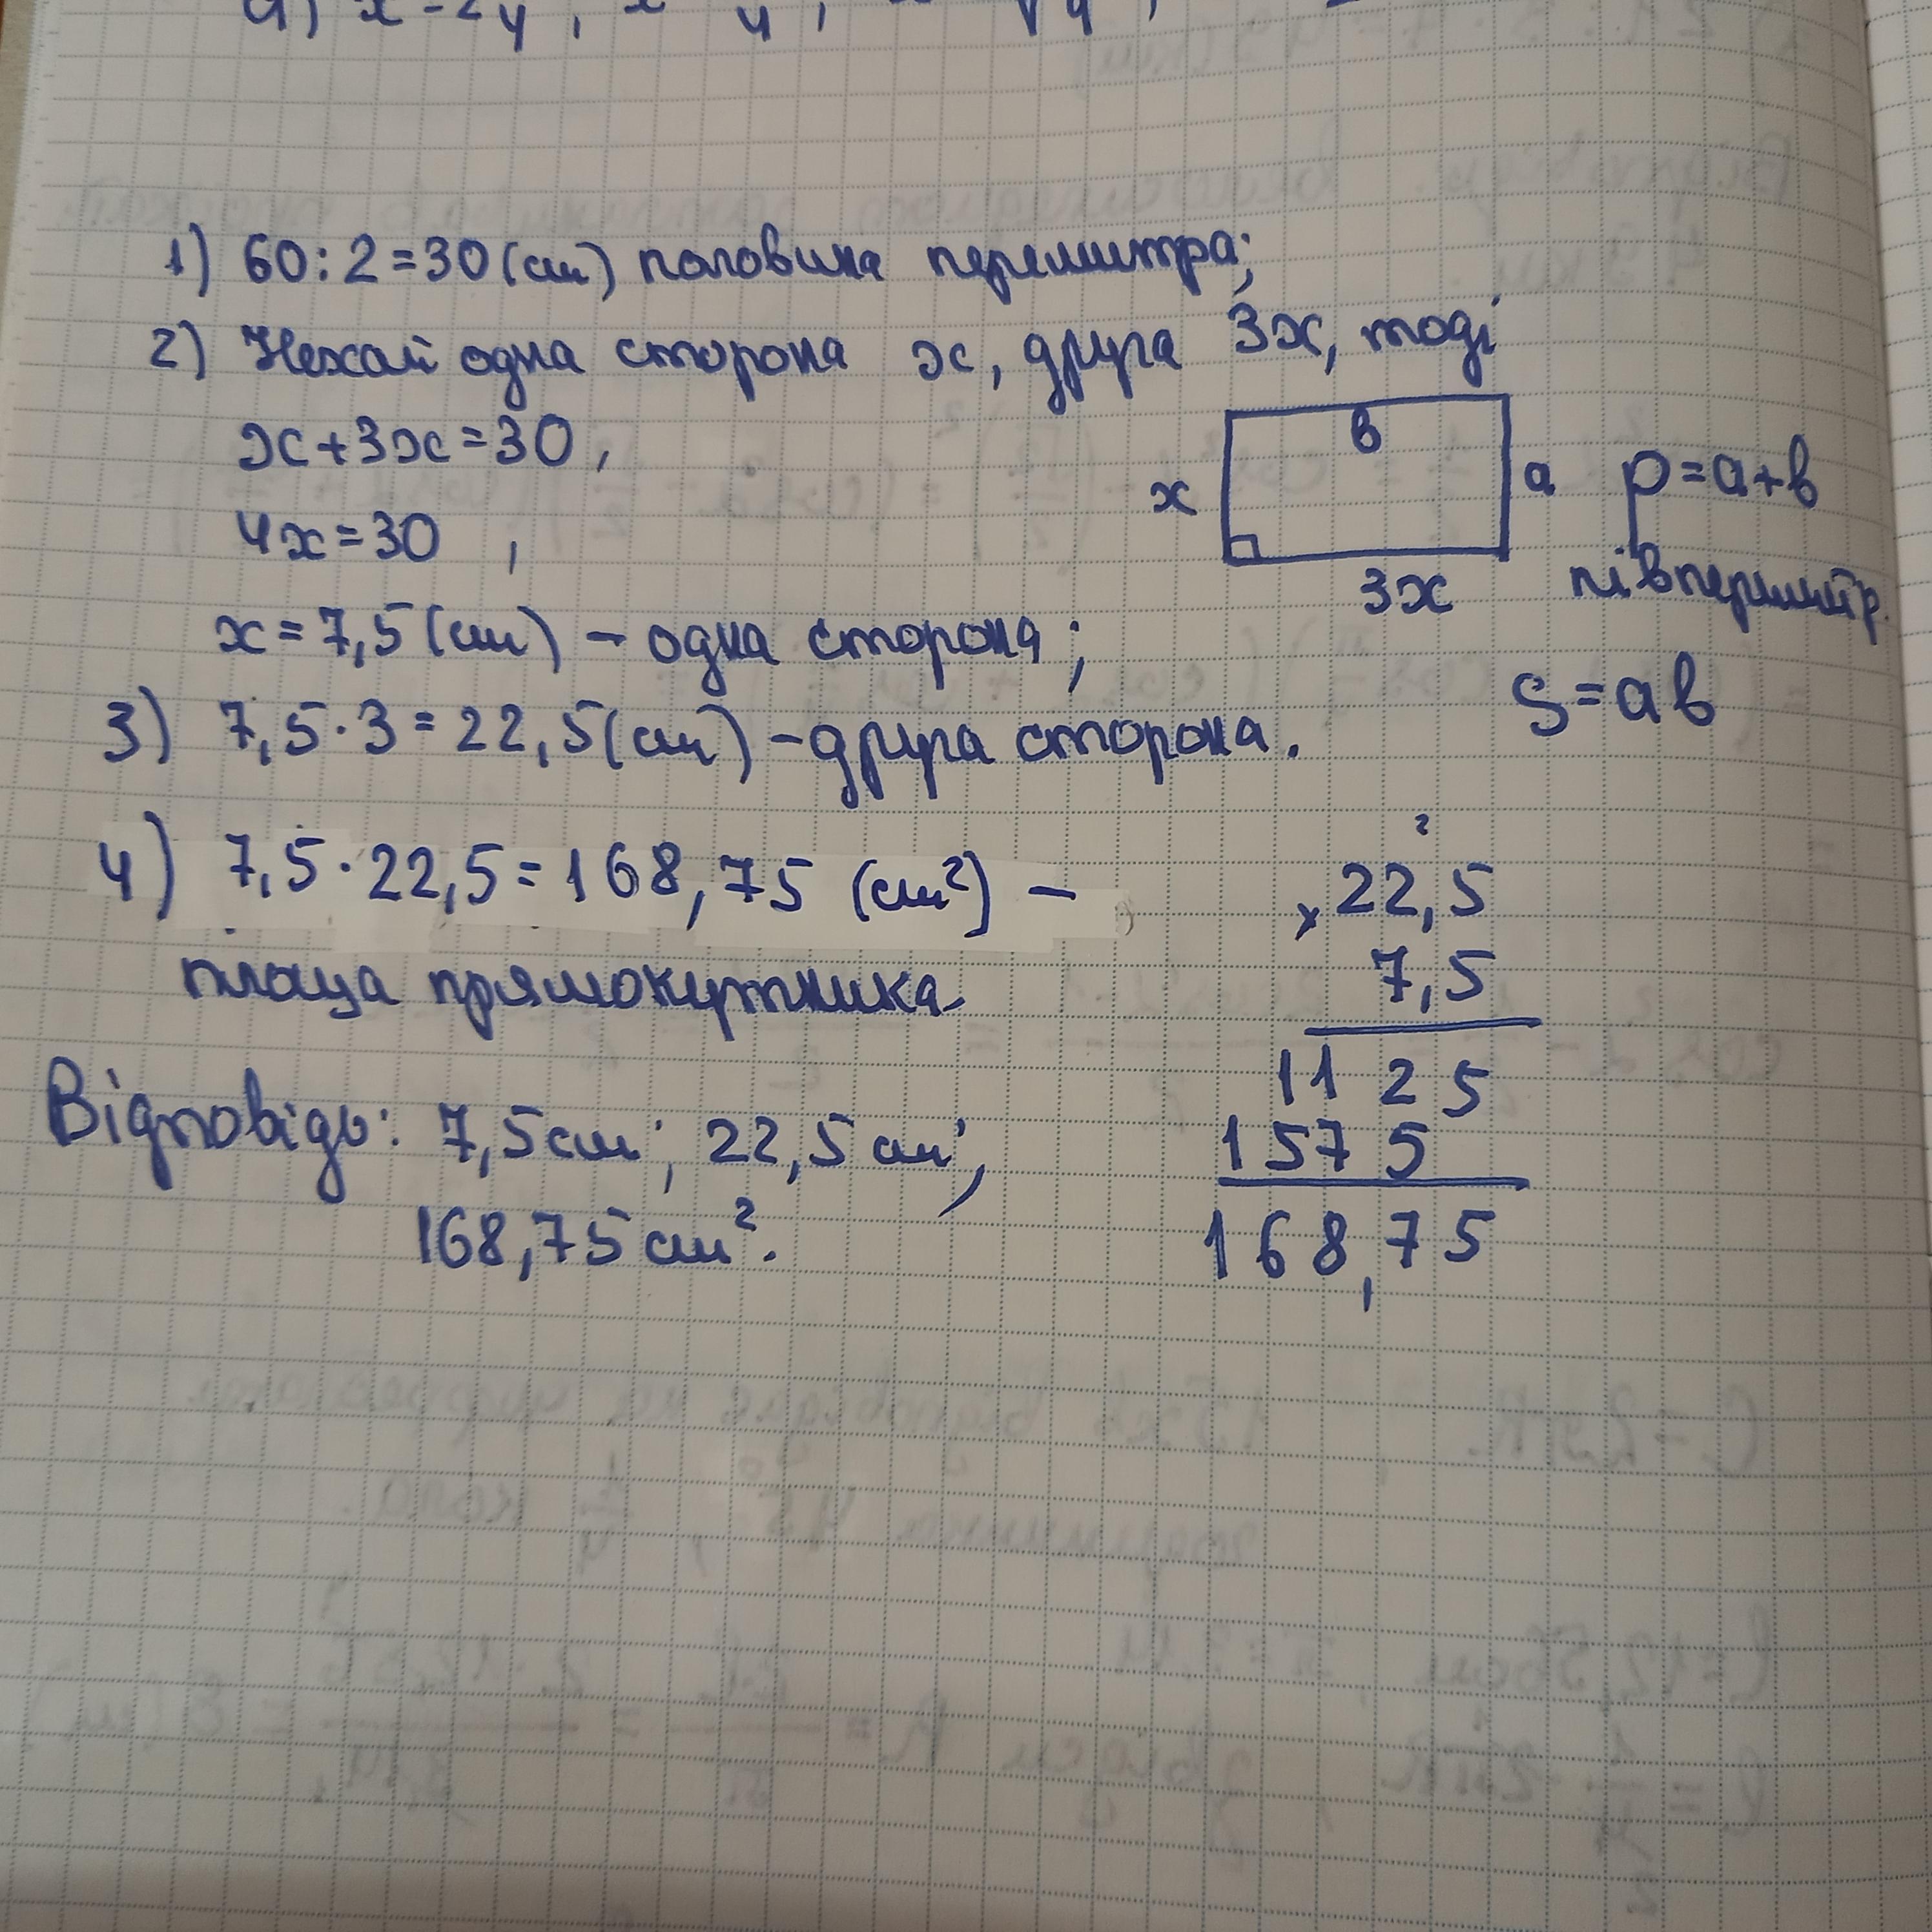 1) 60:2=30(см) половина периметра;
2) Нехай одна сторона x, друга 3x, тоді
x+3x=30,
4x=30,
x=7,5(см) – одна сторона;
3) 7,5·3=22,5(см) – друга сторона.
4) 7,5·22,5=168,75 (см²) –
площа прямокутника
Відповідь: 7,5см; 22,5см;
168,75см².
в
x
a
3x
p=a+в
півперим
S=aв
2
×22,5
7,5
1125
1575
168,75